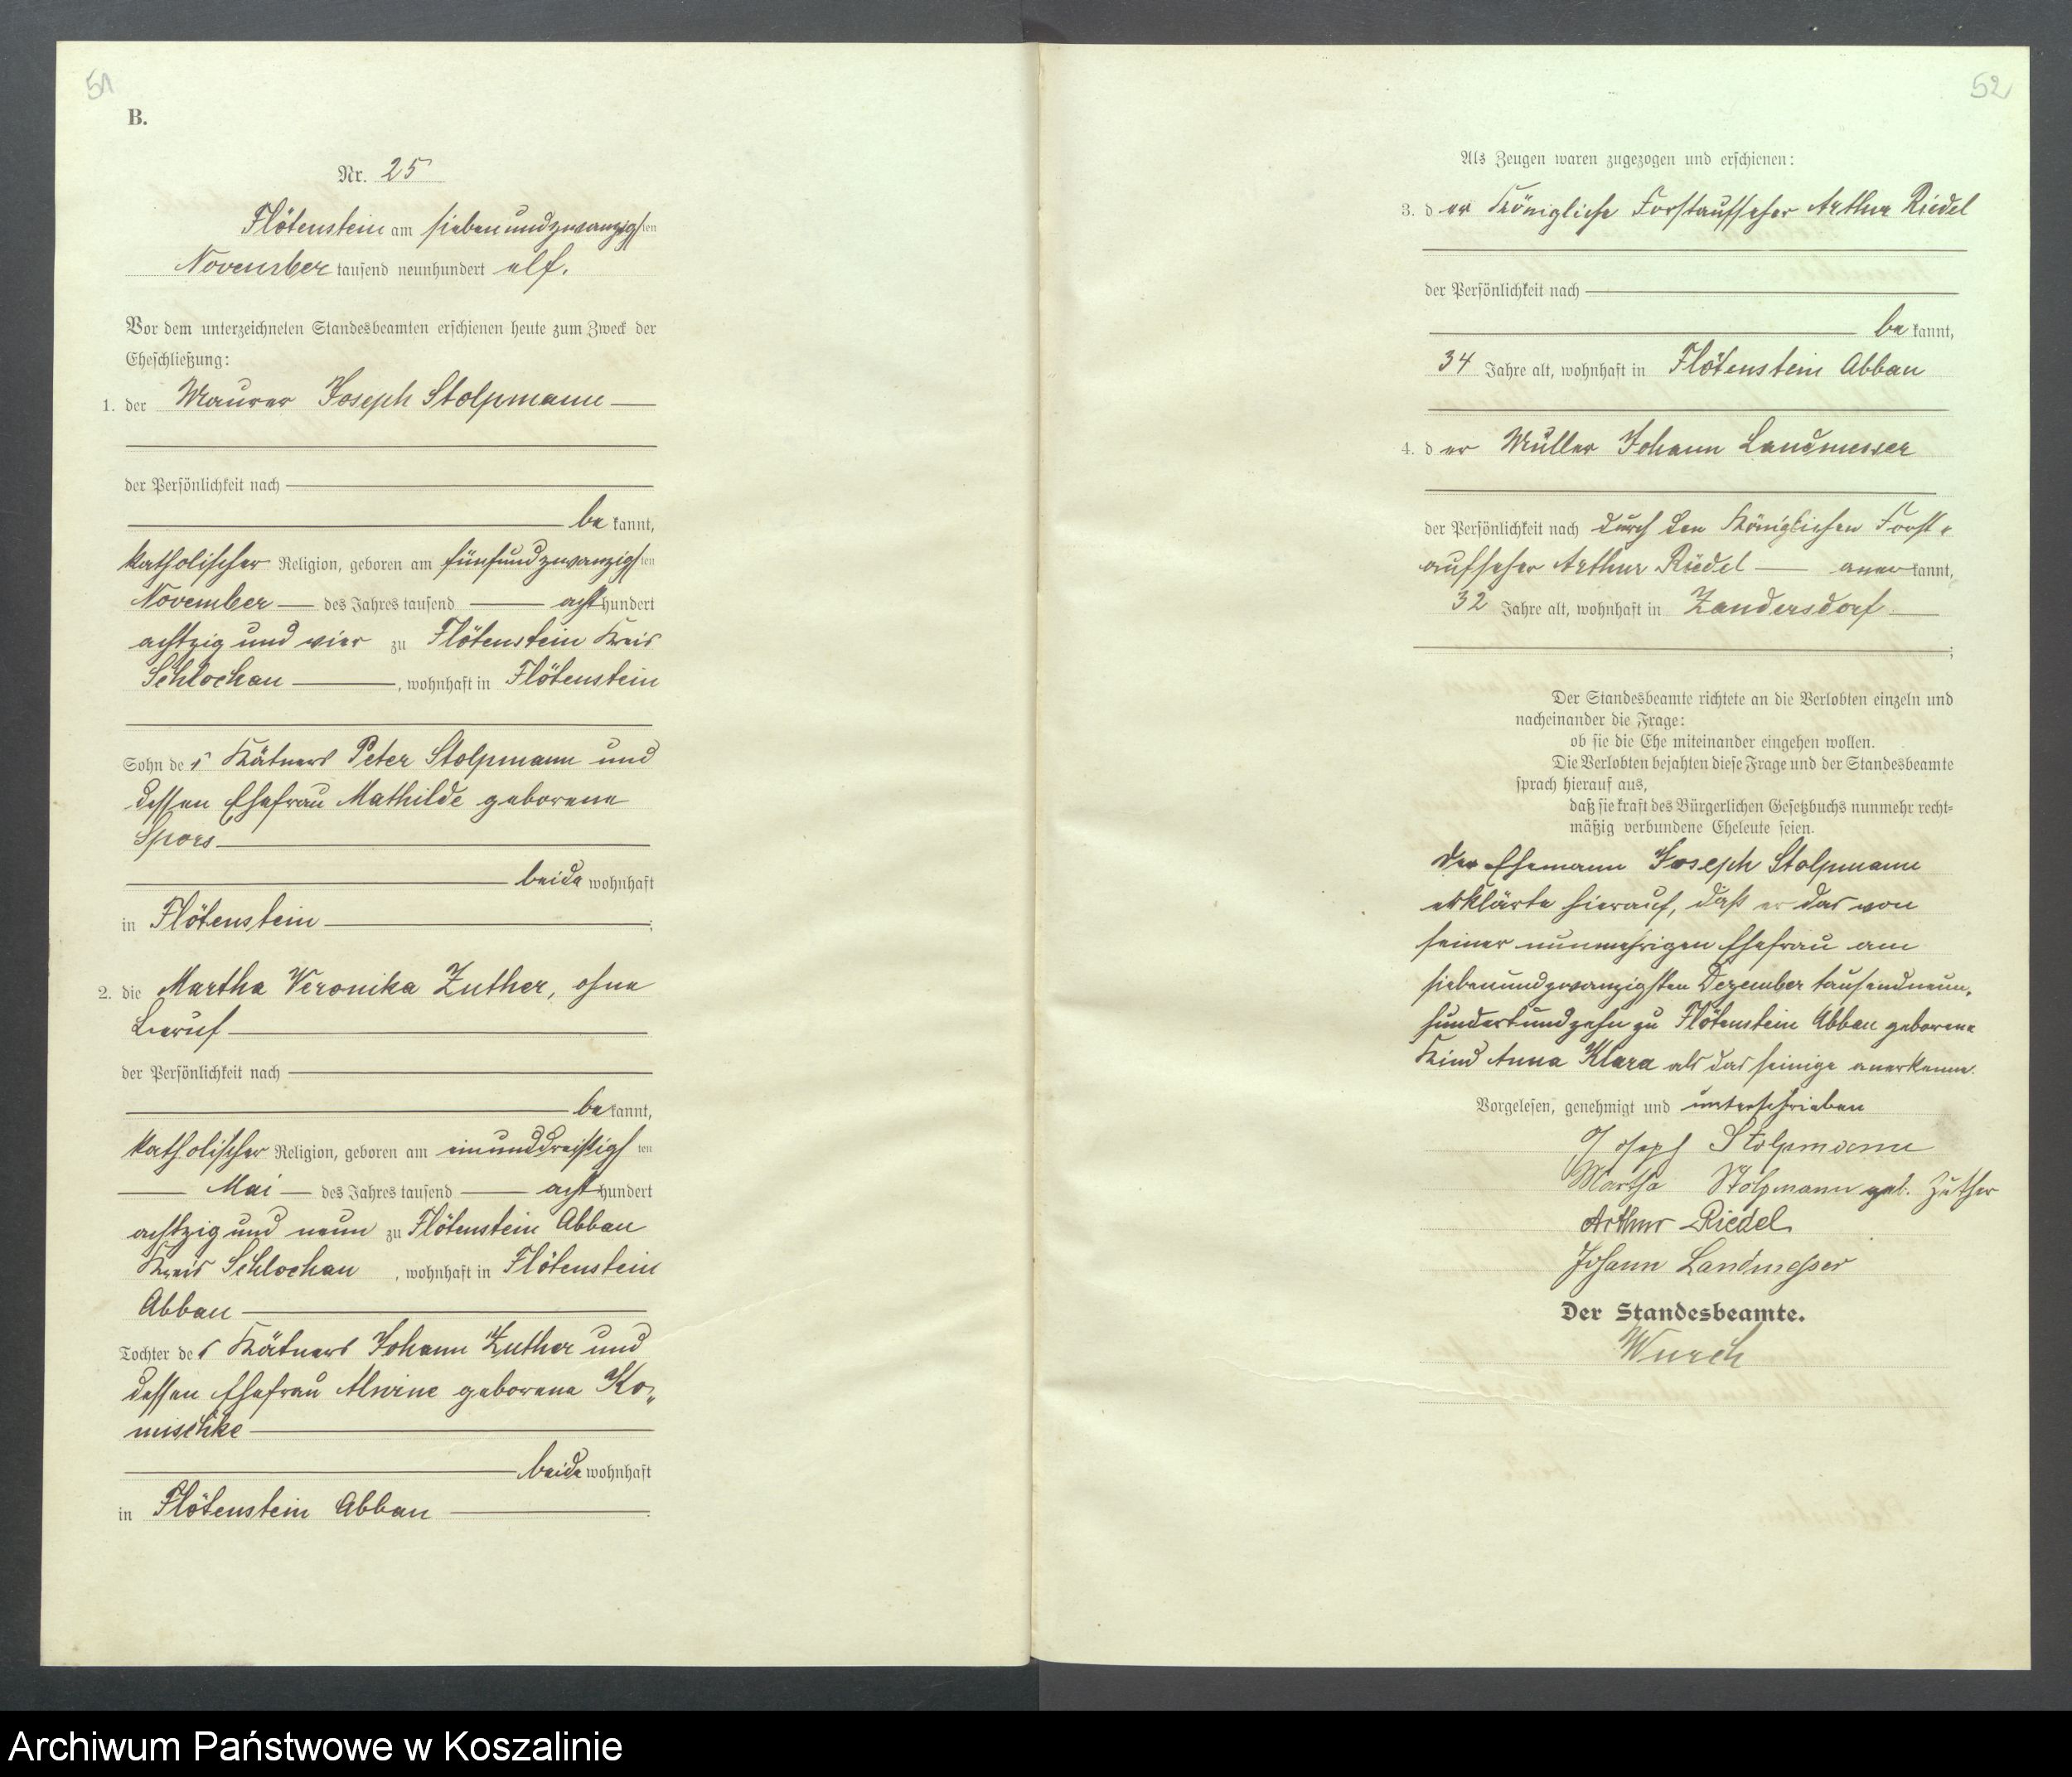 51
B.
Nr. 25
Flötenstein am siebenundzwanzigsten
November tausend neunhundert elf.
Vor dem unterzeichneten Standesbeamten erschienen heute zum Zweck der
Eheschließung:
1. der Maurer Joseph Stolpmann
der Persönlichkeit nach
bekannt,
katholischer Religion, geboren am fünfundzwanzigsten
November des Jahres tausend achthundert
achtzig und vier zu Flötenstein Kreis
Schlochau, wohnhaft in Flötenstein
Sohn des Kätners Peter Stolpmann und
dessen Ehefrau Mathilde geborene
Spors
beide wohnhaft
in Flötenstein;
2. die Martha Veronika Zuther, ohne
Beruf
der Persönlichkeit nach
bekannt,
katholischer Religion, geboren am einunddreißigsten
Mai des Jahres tausend achthundert
achtzig und neun zu Flötenstein Abbau
Kreis Schlochau, wohnhaft in Flötenstein
Abbau
Tochter des Kätners Johann Zuther und
dessen Ehefrau Alwine geborene Ko-
mischke
beide wohnhaft
in Flötenstein Abbau.
52
Als Zeugen waren zugezogen und erschienen:
3. der Königliche Forstaufseher Arthur Riedel
der Persönlichkeit nach
bekannt,
34 Jahre alt, wohnhaft in Flötenstein Abbau
4. der Müller Johann Landmesser
der Persönlichkeit nach durch den Königlichen Forst-
aufseher Arthur Riedel anerkannt,
32 Jahre alt, wohnhaft in Zandersdorf
;
Der Standesbeamte richtete an die Verlobten einzeln und
nacheinander die Frage:
ob sie die Ehe miteinander eingehen wollen.
Die Verlobten bejahten diese Frage und der Standesbeamte
sprach hierauf aus,
daß sie kraft des Bürgerlichen Gesetzbuchs nunmehr recht-
mäßig verbundene Eheleute seien.
Der Ehemann Joseph Stolpmann
erklärte hierauf, daß er das von
seiner nunmehrigen Ehefrau am
siebenundzwanzigsten Dezember tausendneun-
hundertundzehn zu Flötenstein Abbau geborene
Kind Anna Klara als das seinige anerkenne.
Vorgelesen, genehmigt und unterschrieben
Joseph Stolpmann
Martha Stolpmann geb. Zuther
Arthur Riedel
Johann Landmesser
Der Standesbeamte.
Wurch
Archiwum Państwowe w Koszalinie